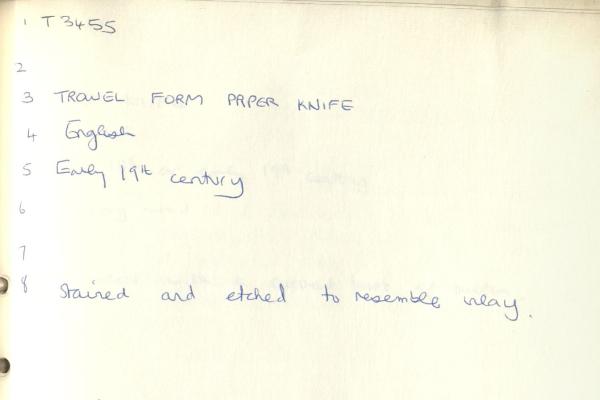 1 T 3455
2
3 TROWEL FORM PAPER KNIFE
4 English
5 Early 19th century
6
7
8 Stained and etched to resemble inlay.